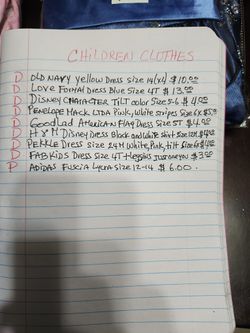 CHILDREN CLOTHES
D OLD NAVY yellow Dress size 14(x4) $10.00
D Love Formal Dress Blue Size 4T $13.00
D Disney Character TILT color Size 5-6 $4.00
D Penelope Mack LTDA Pink, White stripes Size 6x $5.00
D Goodlad American Flag Dress size 5T $4.00
D H & M Disney Dress Black and White Shirt Size $4.00
D PEKKLE Dress size 24M White, Pink, tilt $4.00
D FABKIDS Dress Size 4T $3.00
P ADIDAS Fuscia Lycra size 12-14 $6.00